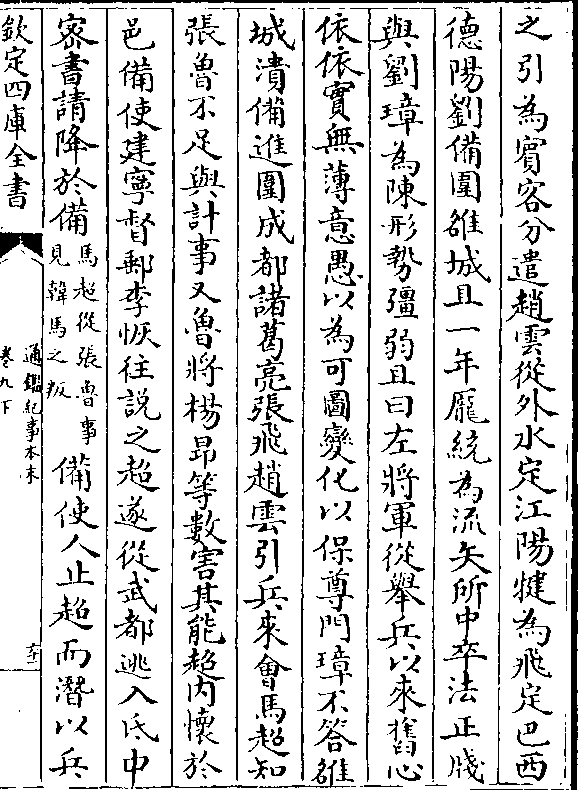 之引為賔客分遣趙雲從外水定江陽犍為飛定巴西
德陽劉備圍雒城且一年龐統為流矢所中卒法正牋
與劉璋為陳形勢彊弱且曰左將軍從舉兵以來舊心
依依實無薄意愚以為可圖變化以保尊門璋不答雒
城潰備進圍成都諸葛亮張飛趙雲引兵來會馬超知
張魯不足與計事又魯將楊昂等數害其能超内懷於
邑備使建寧督郵李恢往說之超遂從武都逃入氐中
宻書請降於備馬超從張魯事見韓馬之叛備使人止超而潛以兵
欽定四庫全書
通鑑紀事本末
卷九下